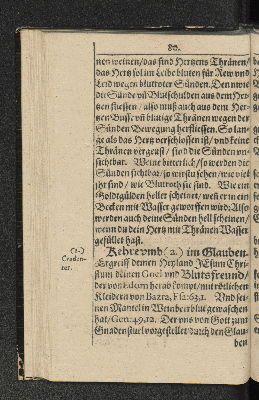 80.
nen weinen / das sind Hertzens Thränen /
das Hertz sol im Leibe bluten für Rew und
Leid wegen blutroter Sünden. Den wie
die Sünde Blutschulden aus dem Her-
tzen fliessen / also muß auch aus dem Her-
tzen Busse blutige Thränen wegen der
Sünden Bewegung herfliessen. So lan-
ge als das Hertz verschlossen ist / und keine
Thränen vergeust / sind die Sünden un-
sichtbar. Weine bitterlich / so werden die
Sünden sichtbar / so wirstu sehen / wie viel
ihr sind / wie Blutroth sie sind. Wie ein
Goldgülden heller scheinet / wen er in ein
Becken mit Wasser geworffen wird: Also
werden auch deine Sünden hell scheinen /
wenn du dein Hertz mit Thränen Wasser
gefüllet hast.
Kehre umb (2.) im Glauben.
(2.)
Creden-
ter.
Ergreiff deinen Heyland JEsum Chri-
stum deinen Goel und Blutsfreund /
der von Edom herab kompt / mit rötlichen
Kleidern von Bazra, Esa: 63,1. Und sei-
nen Mantel in Weinbeerblut gewaschen
hat / Gen: 49,12. Der uns von Gott zum
Gnadenstuel vorgestellet / durch den Glau-
ben